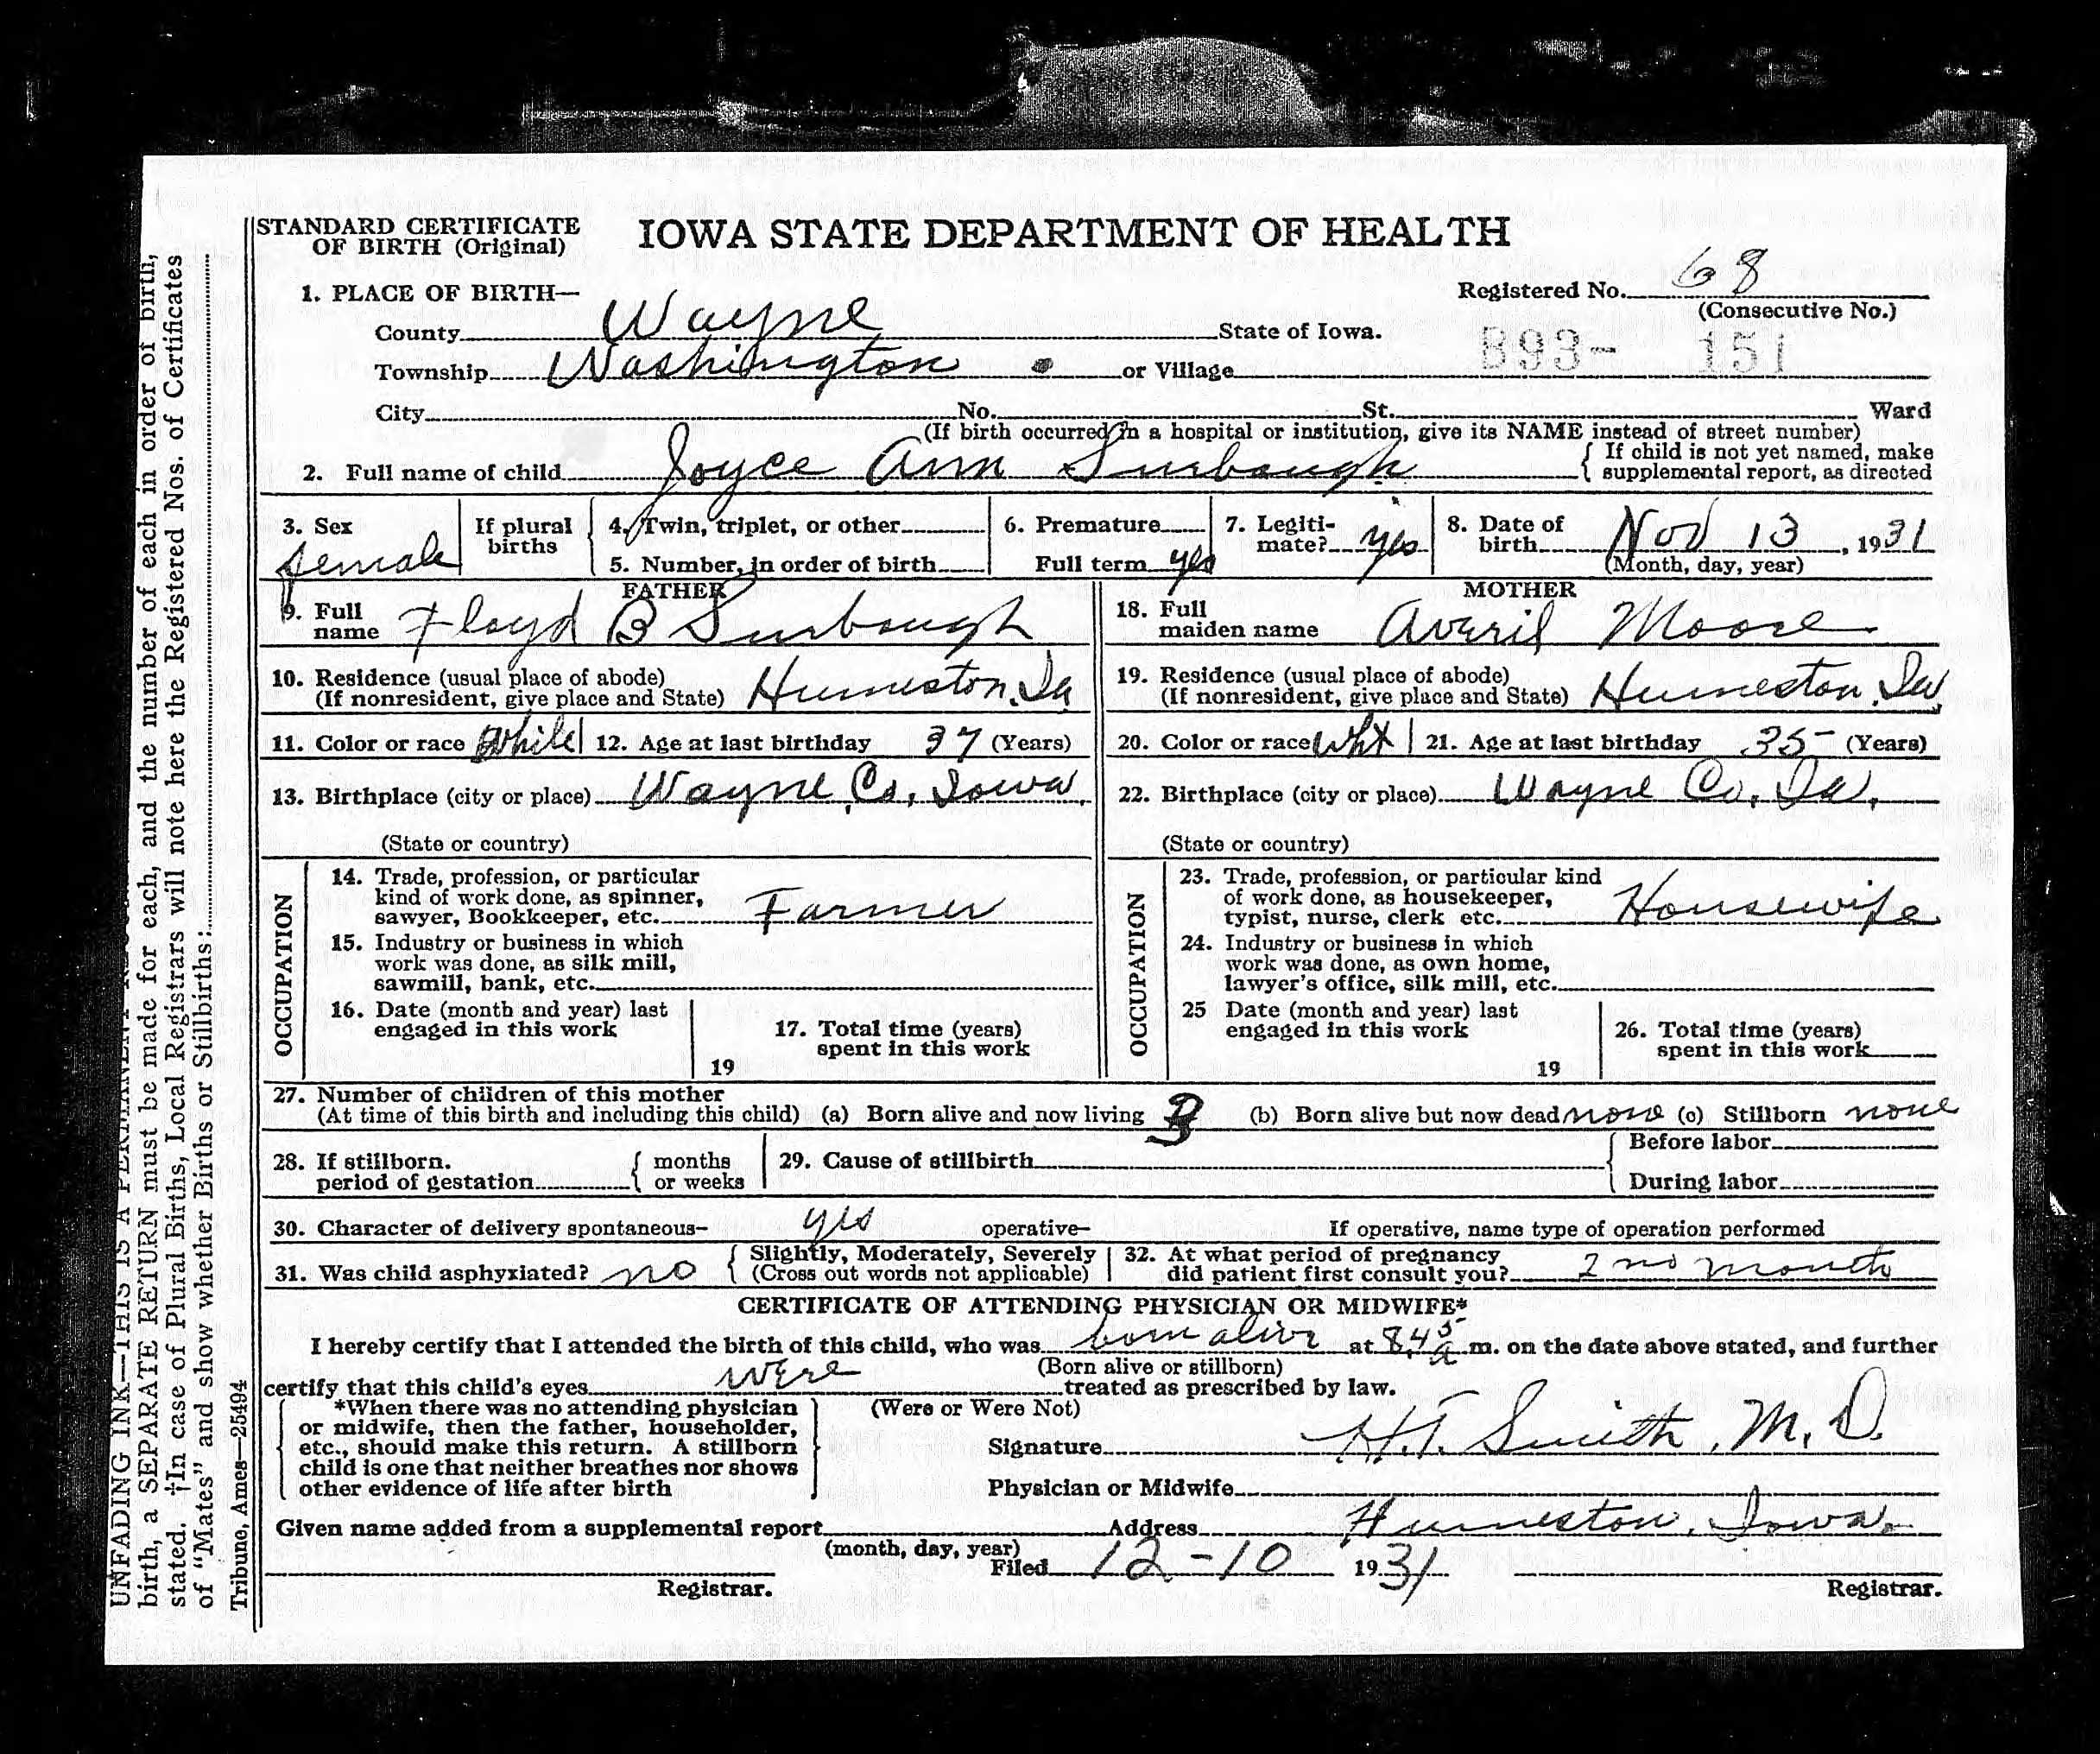 STANDARD CERTIFICATE
OF BIRTH (Original)
IOWA STATE DEPARTMENT OF HEALTH
1. PLACE OF BIRTH—
Registered No. 68
(Consecutive No.)
County Wayne State of Iowa.
B93- 151
Township Washington or Village
City No. St. Ward
(If birth occurred in a hospital or institution, give its NAME instead of street number)
2. Full name of child Joyce Ann Surbaugh { If child is not yet named, make
supplemental report, as directed
3. Sex female
If plural births { 4. Twin, triplet, or other
5. Number, in order of birth
6. Premature
Full term yes
7. Legiti-
mate? yes
8. Date of
birth Nov 13, 1931
(Month, day, year)
FATHER
9. Full
name Floyd B Surbaugh
10. Residence (usual place of abode)
(If nonresident, give place and State) Humeston, Ia
11. Color or race White 12. Age at last birthday 37 (Years)
13. Birthplace (city or place) Wayne Co, Iowa
(State or country)
OCCUPATION
14. Trade, profession, or particular
kind of work done, as spinner,
sawyer, Bookkeeper, etc. Farmer
15. Industry or business in which
work was done, as silk mill,
sawmill, bank, etc.
16. Date (month and year) last
engaged in this work
19
17. Total time (years)
spent in this work
MOTHER
18. Full
maiden name Averil Moore
19. Residence (usual place of abode)
(If nonresident, give place and State) Humeston, Ia
20. Color or race Wht 21. Age at last birthday 35 (Years)
22. Birthplace (city or place) Wayne Co, Ia.
(State or country)
OCCUPATION
23. Trade, profession, or particular kind
of work done, as housekeeper,
typist, nurse, clerk etc. Housewife
24. Industry or business in which
work was done, as own home,
lawyer's office, silk mill, etc.
25 Date (month and year) last
engaged in this work
19
26. Total time (years)
spent in this work
27. Number of children of this mother
(At time of this birth and including this child) (a) Born alive and now living 3 (b) Born alive but now dead none (c) Stillborn none
28. If stillborn.
period of gestation { months
or weeks
29. Cause of stillbirth { Before labor
During labor
30. Character of delivery spontaneous- yes operative- If operative, name type of operation performed
31. Was child asphyxiated? no { Slightly, Moderately, Severely
(Cross out words not applicable)
32. At what period of pregnancy
did patient first consult you? 2nd month
CERTIFICATE OF ATTENDING PHYSICIAN OR MIDWIFE*
I hereby certify that I attended the birth of this child, who was born alive at 8,45 a m. on the date above stated, and further
(Born alive or stillborn)
certify that this child's eyes were treated as prescribed by law.
(Were or Were Not)
*When there was no attending physician
or midwife, then the father, householder,
etc., should make this return. A stillborn
child is one that neither breathes nor shows
other evidence of life after birth
Signature H.T. Smith, M.D.
Physician or Midwife
Given name added from a supplemental report
(month, day, year)
Address Humeston, Iowa.
Filed 12-10 1931
Registrar.
Registrar.
UNFADING INK—THIS IS A PERMANENT
birth, a SEPARATE RETURN must be made for each, and the number of each in order of birth,
stated. †In case of Plural Births, Local Registrars will note here the Registered Nos. of Certificates
of "Mates" and show whether Births or Stillbirths:
Tribune, Ames—25494